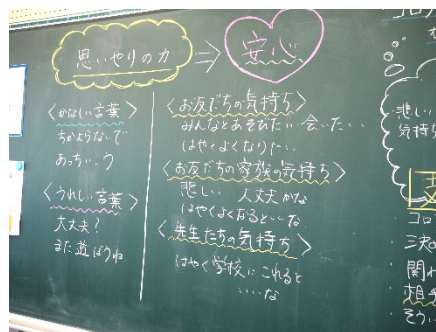 思いやりの力 ⇒ 安心
〈かなしい言葉〉
ちかよらないで
あっちいけ
〈うれしい言葉〉
大丈夫？
また遊ぼうね
〈お友だちの気持ち〉
みんなとあそびたい…会いたい…
はやくよくなりたい…
〈お友だちの家族の気持ち〉
悲しい 大丈夫かな
はやくよくなるといいな
〈先生たちの気持ち〉
はやく学校にこれると
いいな
悲しい
気持ち
コロ
関わ
相手
そうい